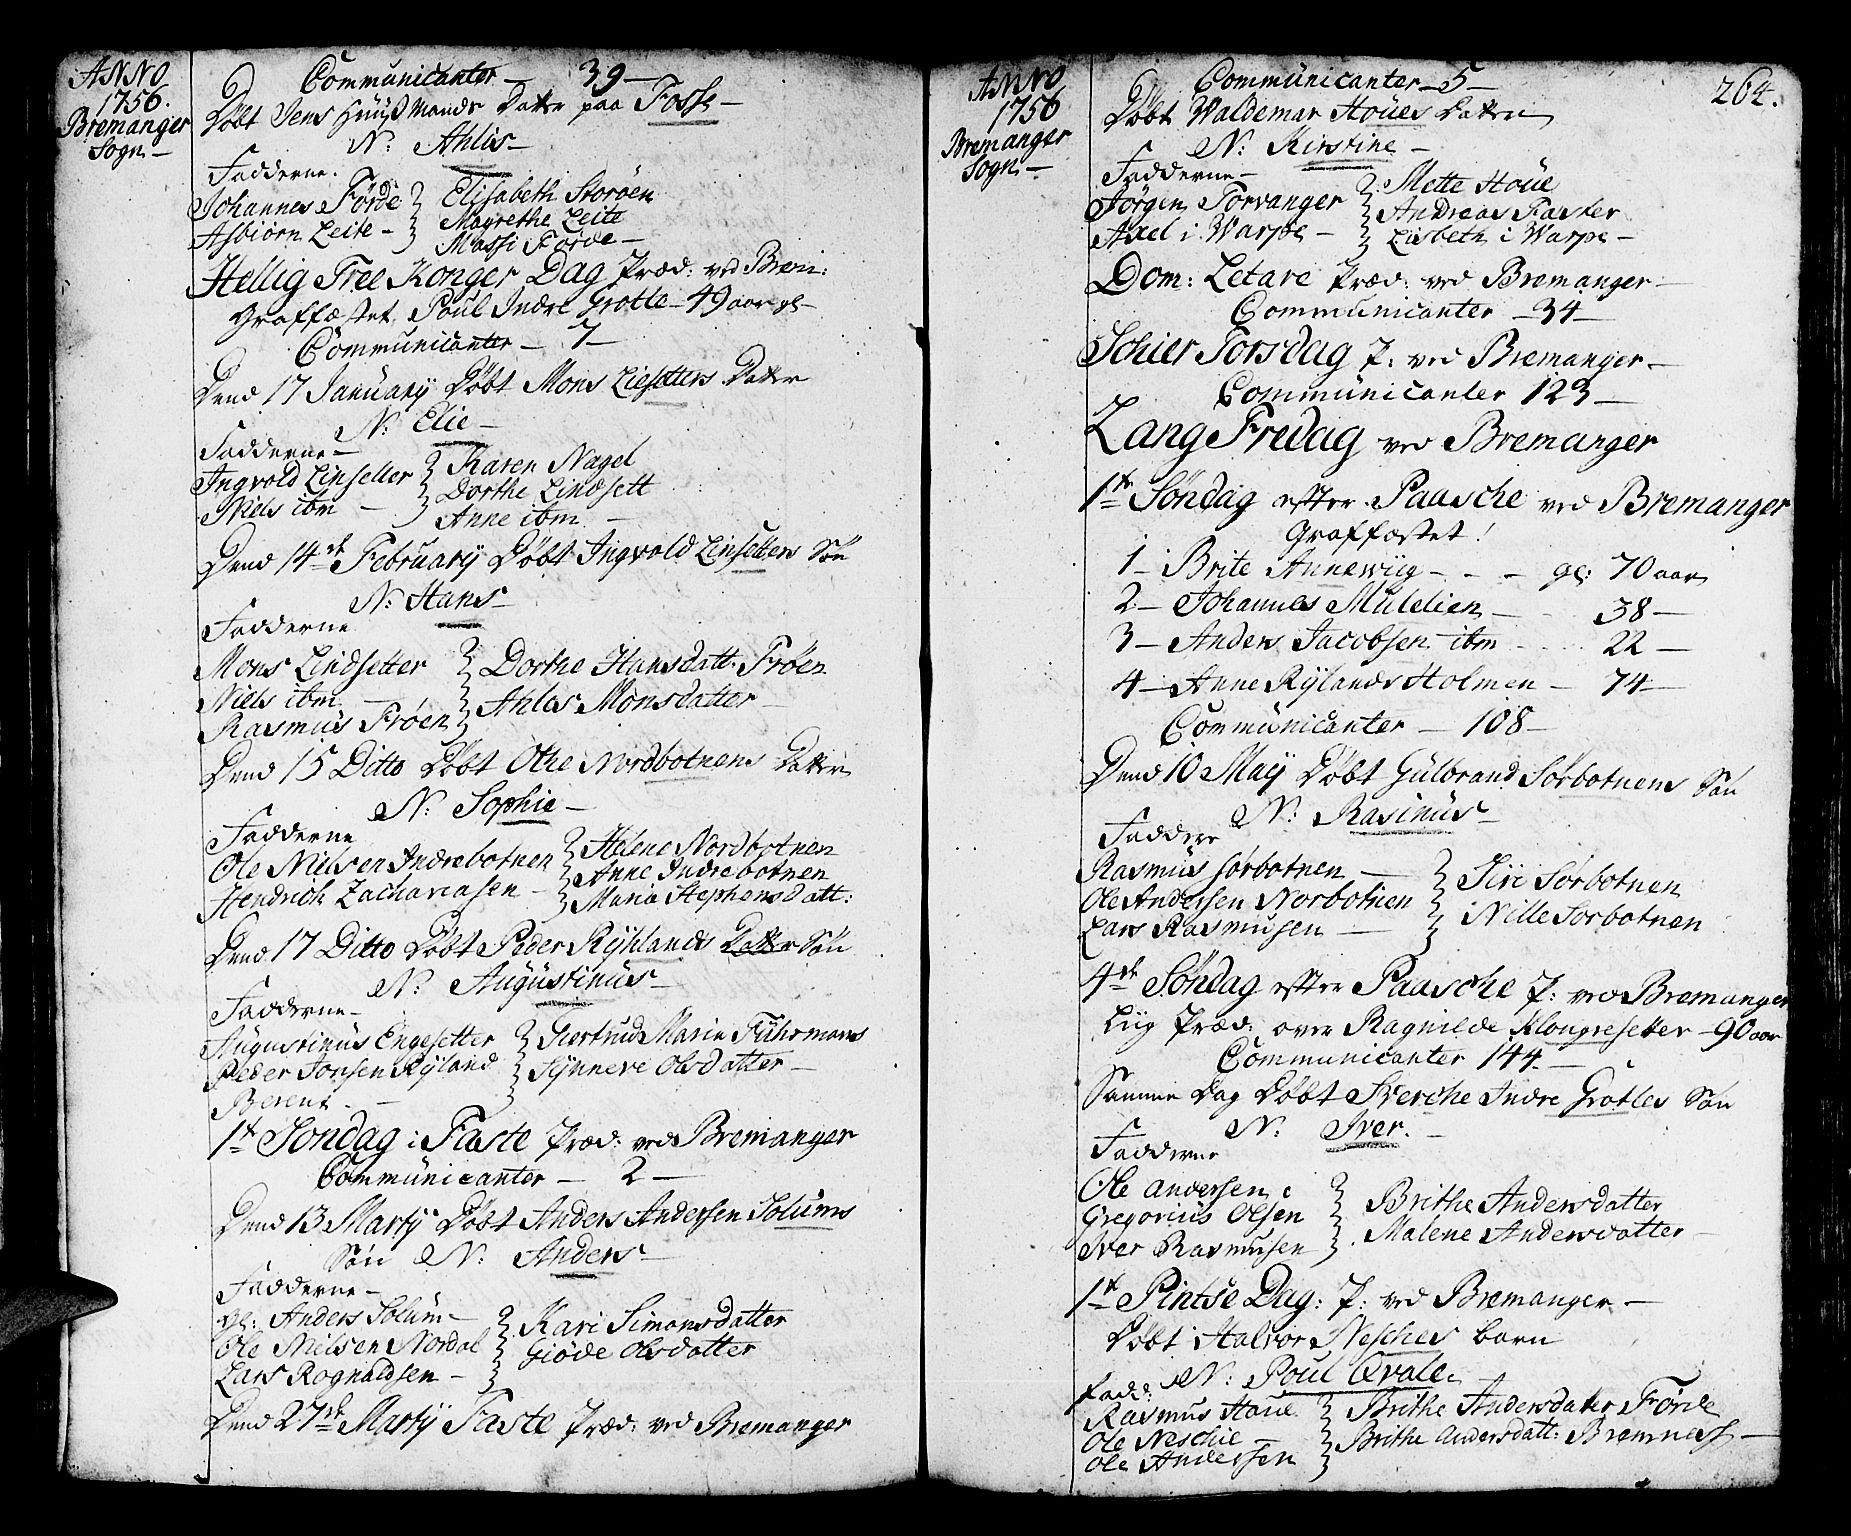 ANNO
1756.
Bremanger
Sogn –
Communicanter – 39 –
Døbt Jens Huusmands Datter paa Fosse –
N: Ahlis –
Fadderne.
Johannes Førde } Elisabeth Storøen
Asbiørn Leite – } Magrethe Leite
Massi Førde –
Hellig Tree Konger Dag Præd: ved Brem:
Graffæstet Poul Indre Grotle – 49 aar gl –
Communicanter – 7 –
Dend 17 Januarÿ Døbt Mons Liesetters Datter
N: Elie –
Fadderne –
Ingvold Linsetter } Karen Nagel
Niels ibm – } Dorthe Lindsett
Anne ibm –
Dend 14de Februarÿ Døbt Ingvold Linsetters Søn
N: Hans –
Fadderne
Mons Lindsetter } Dorthe Hansdatt: Frøen
Niels ibm – } Ahlos Monsdatter –
Rasmus Frøen }
Dend 15 Ditto Døbt Othe Nordbotnens Datter
N: Sophie –
Fadderne
Ole Nielsen Indrebotnen } Helene Nordbotnen
Hendrich Zachariasen – } Anne Indrebotnen
Maria Stephensdatt:
Dend 17 Ditto Døbt Peder Rÿhlands Datter Søn
N: Augustinus –
Fadderne –
Augustinus Engesetter } Giertrud Maria Fuhrmans
Peder Jonsen Rÿland } Sÿnneve Olsdatter –
Berent –
1te Søndag i Faste Præd: ved Bremanger
Communicanter – 2 –
Dend 13 Martÿ Døbt Anders Andersen Solums
Søn N: Anders –
Fadderne –
gl: Anders Solum – } Kari Simonsdatter
Ole Nielsen Nordal } Giøde Olsdatter
Lars Rognaldsen – }
Dend 27de Martÿ Faste Præd: ved Bremanger
ANNO
1756
Bremanger
Sogn –
264.
Communicanter – 5 –
Døbt Waldemar Houes Datter
N: Kirstine –
Fadderne –
Jørgen Torvanger } Mette Houe
Axel i Warpe – } Andreas Faster
Lisbeth i Warpe –
Dom: Letare Præd: ved Bremanger –
Communicanter – 34 –
Schier Torsdag P: ved Bremanger –
Communicanter 123 –
Lang Fredag ved Bremanger
1te Søndag efter Paasche ved Bremanger
Graffæstet!
1 – Brite Annewiig – – – gl: 70 aar
2 – Johannes Mulelien – 38 –
3 – Anders Jacobsen ibm – 22 –
4 – Anne Rÿlands Holmen – 74 –
Communicanter – 108 –
Dend 10 Maÿ Døbt Gulbrand Sørbotnens Søn
N: Rasmus –
Faddere
Rasmus Sørbotnen – } Siri Sørbotnen
Ole Andersen Norbotnen } Nille Sørbotnen
Lars Rasmusen – }
4de Søndag efter Paasche P: ved Bremanger
Liig Præd: over Ragnilde Klongresetter – 90 aar
Communicanter 144 –
Samme Dag Døbt Sverche Indre Grotles Søn
N: Iver. –
Fadderne
Ole Andersen } Brithe Andersdatter
Gregorius Olsen } Malene Andersdatter –
Iver Rasmusen }
1te Pintse Dag: P: ved Bremanger –
Døbt Halvor Nesches barn
N: Poul Qvale.
Fadd:
Rasmus Houe } Brithe Andersdatter Førde
Ole Neschie – } Brithe Andersdatt: Bremnes –
Ole Andersen }